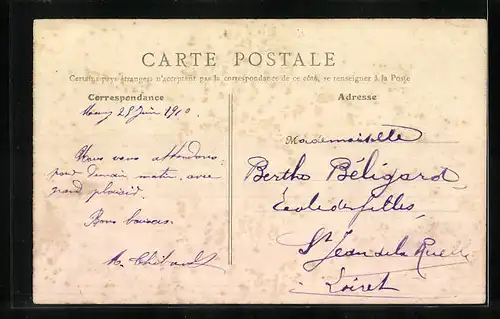 CARTE POSTALE
Certains pays étrangers n'acceptent pas la correspondance de ce côté, se renseigner à la Poste
Correspondance
Adresse
25 Juin 1910.
Nous vous attendons
pour demain matin avec
grand plaisir.
Bons baisers.
M. Thibault
Mademoiselle
Berthe Béligard
École de filles,
St Jean de la Ruelle
Loiret